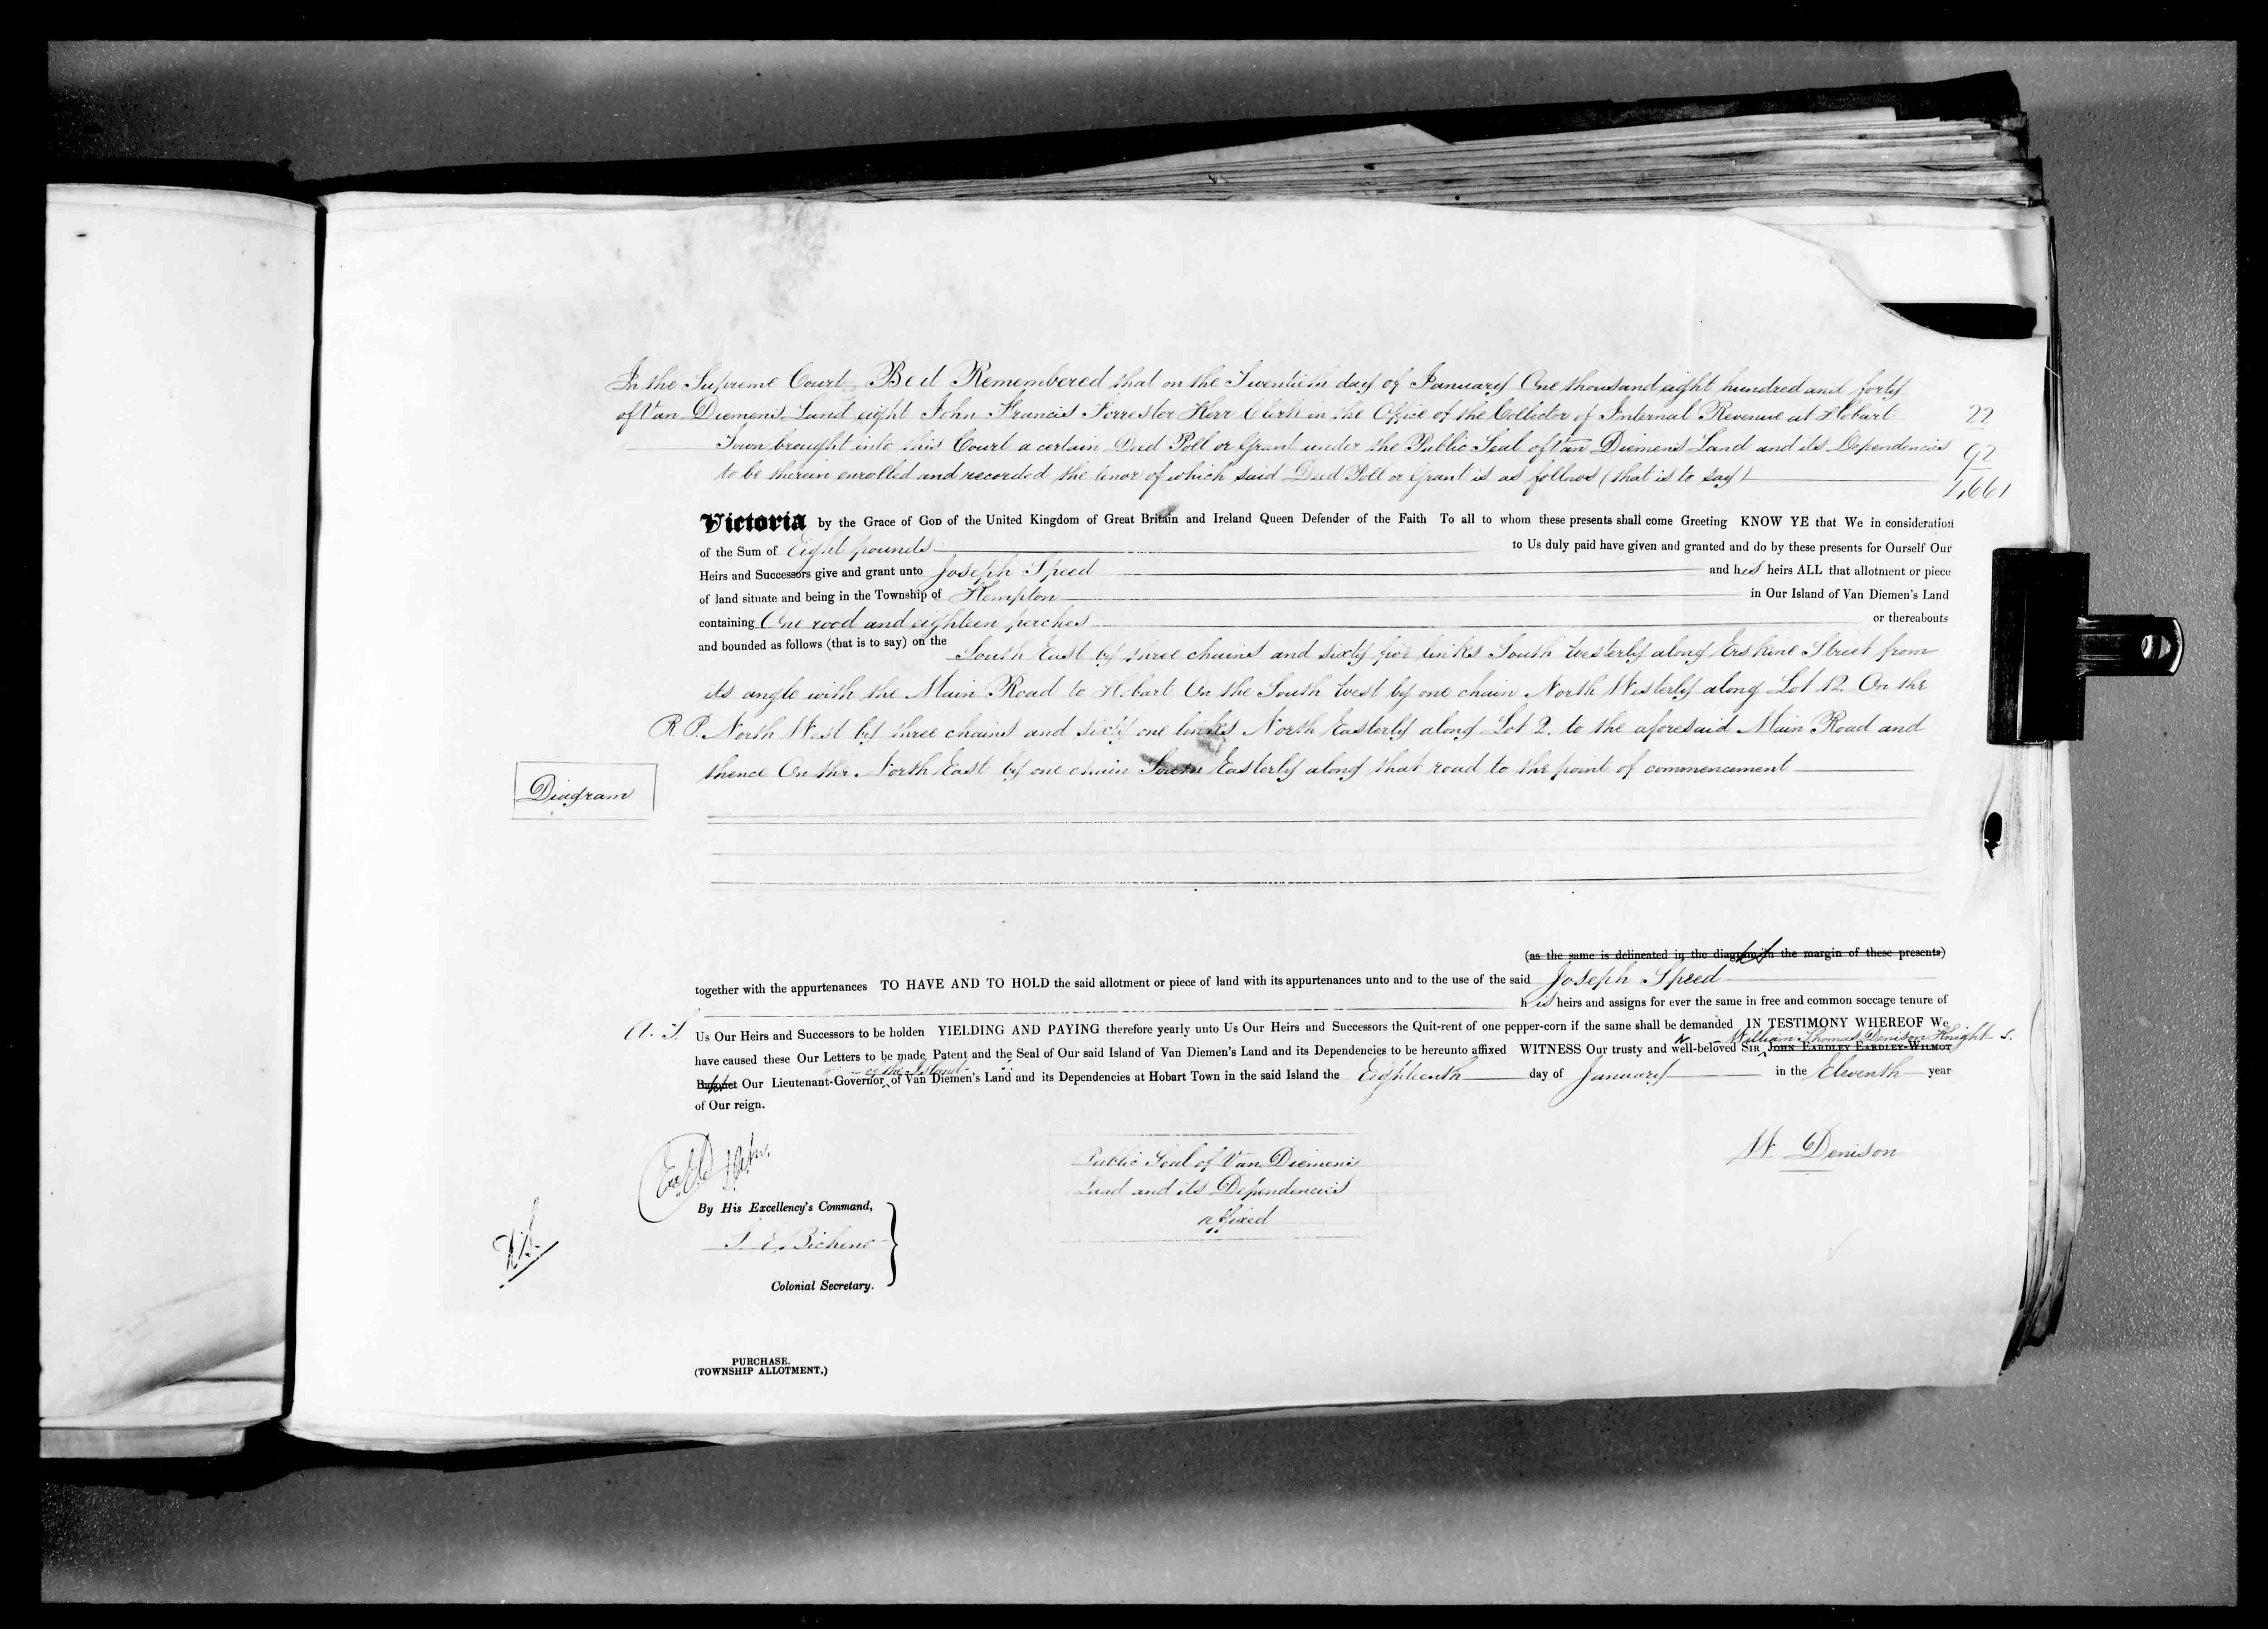 In the Supreme Court Be it Remembered that on the Twentieth day of January One thousand eight hundred and forty
of Van Diemens Land eight John Francis Forrester Kerr Clerk in the Office of the Collector of Internal Revenue at Hobart
22
Town brought into this Court a certain Deed Poll or Grant under the Public Seal of Van Diemens Land and its Dependencies
92
to be therein enrolled and recorded the tenor of which said Deed Poll or Grant is as follows (that is to say)
1,661
Victoria by the Grace of God of the United Kingdom of Great Britain and Ireland Queen Defender of the Faith To all to whom these presents shall come Greeting KNOW YE that We in consideration
of the Sum of Eight pounds to Us duly paid have given and granted and do by these presents for Ourself Our
Heirs and Successors give and grant unto Joseph Speed and his heirs ALL that allotment or piece
of land situate and being in the Township of Kempton in Our Island of Van Diemen's Land
containing One rood and eighteen perches or thereabouts
and bounded as follows (that is to say) on the South East by three chains and sixty five links South Westerly along Erskine Street from
its angle with the Main Road to Hobart On the South West by one chain North Westerly along Lot 12. On the
R.P. North West by three chains and sixty one links North Easterly along Lot 2. to the aforesaid Main Road and
thence On the North East by one chain South Easterly along that road to the point of commencement
Diagram
(as the same is delineated in the diagram in the margin of these presents)
together with the appurtenances TO HAVE AND TO HOLD the said allotment or piece of land with its appurtenances unto and to the use of the said Joseph Speed
his heirs and assigns for ever the same in free and common soccage tenure of
A. S. Us Our Heirs and Successors to be holden YIELDING AND PAYING therefore yearly unto Us Our Heirs and Successors the Quit-rent of one pepper-corn if the same shall be demanded IN TESTIMONY WHEREOF We
William Thomas Denison Knight
have caused these Our Letters to be made Patent and the Seal of Our said Island of Van Diemen's Land and its Dependencies to be hereunto affixed WITNESS Our trusty and well-beloved Sir John Eardley Eardley-Wilmot
of the Island
Baronet Our Lieutenant-Governor of Van Diemen's Land and its Dependencies at Hobart Town in the said Island the Eighteenth day of January in the Eleventh year
of Our reign.
W. Denison
Public Seal of Van Diemens
Land and its Dependencies
affixed
By His Excellency's Command,
J. E. Bicheno
Colonial Secretary.
PURCHASE.
(TOWNSHIP ALLOTMENT.)